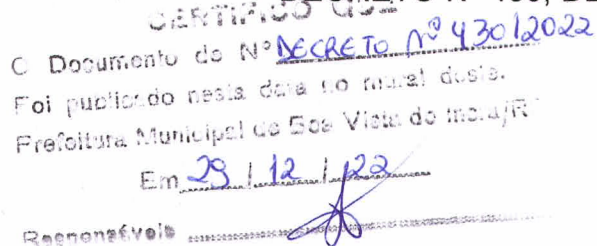 CERTIFICO QUE
O Documento do Nº DECRETO nº 430/2022
Foi publicado nesta data no mural desta.
Prefeitura Municipal de Boa Vista do Incra/R
Em 29 / 12 / 22
Responsáveis